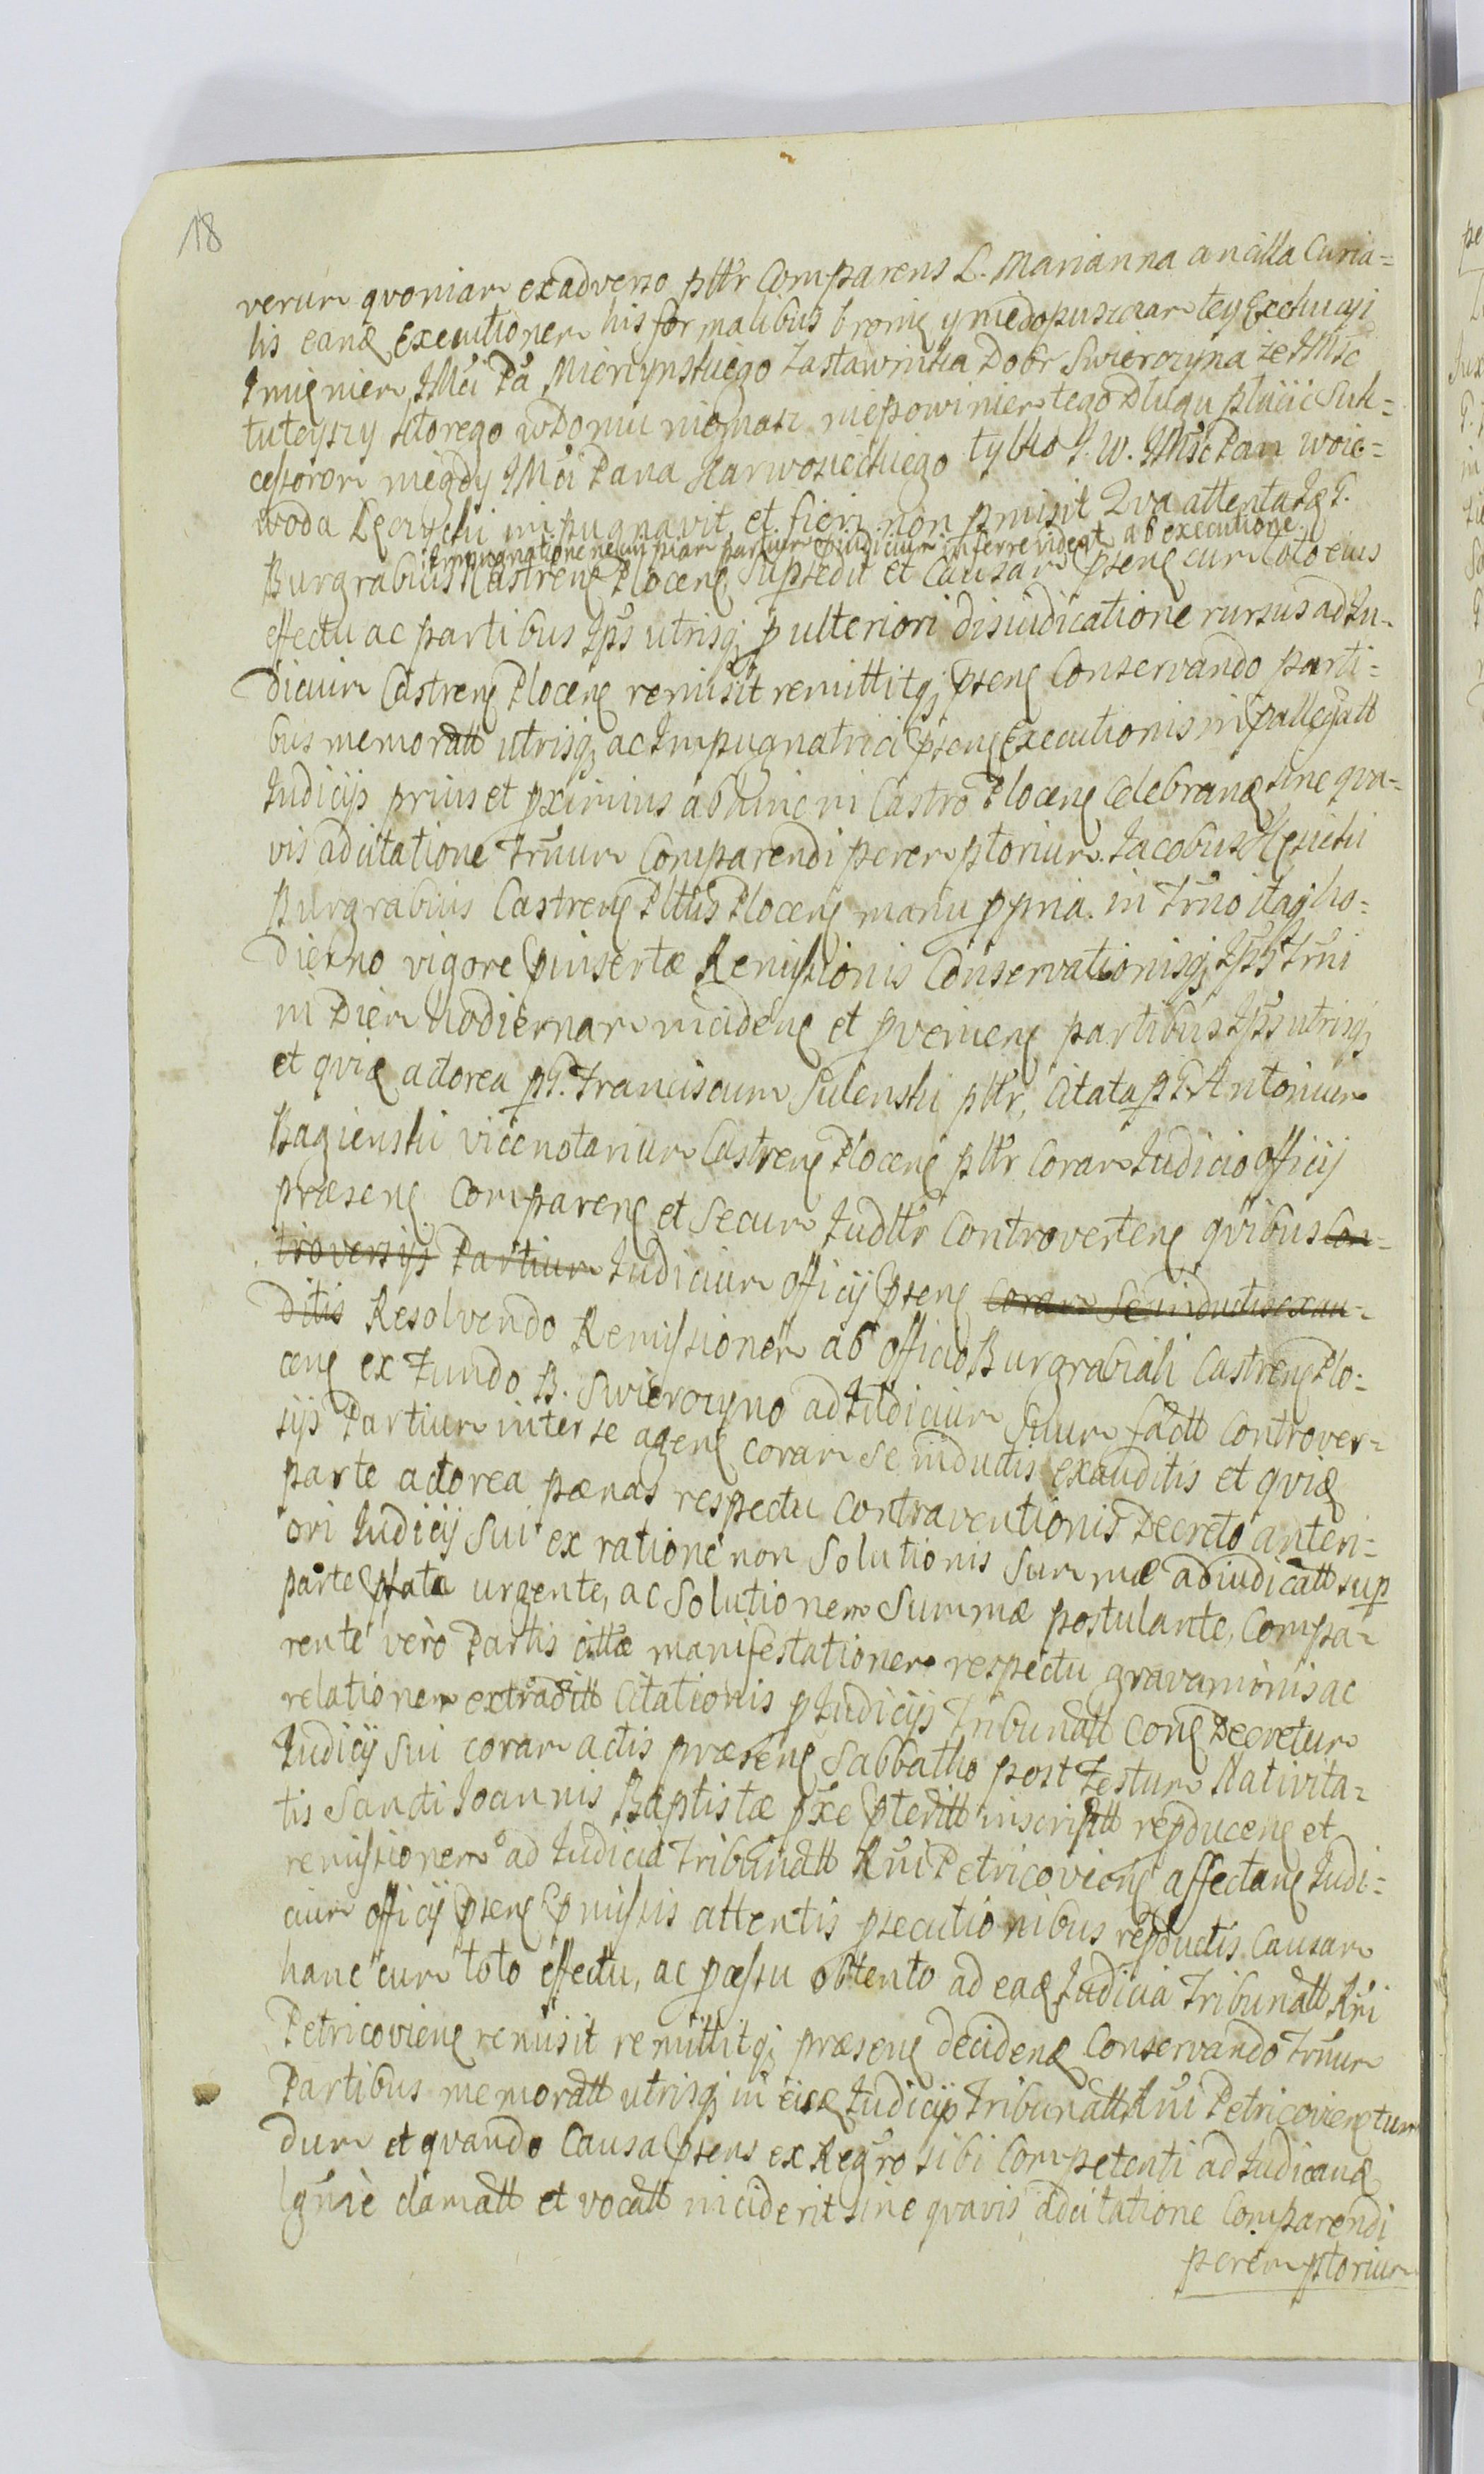 18
verum qvoniam exadverso pltr Comparens L. Marianna ancilla Curia=
lis eand Executionem his formalibus bronię y niedopuszczam tey Exekucyi
Imieniem JMci Pa Miorzynskiego Zastawnika Dobr Swierczyna ze JMsc
tuteyszy ktorego w Domu niemasz niepowinien tego Dlugu placic Suk=
cessorom niegdy JMci Pana Karwosieckiego tylko J. W. JMsc Pan woie=
woda Łęczycki impugnavit et fieri non pmisit Qva attenta Idq G.
Impugnatione ne in piam partium pjudicium inferre videat ab executione
Burgrabius Castren Plocen Supsedit et Causam psen cum toto eius
effectu ac partibus Ips utrisq p ulteriori disiudicatione rursus ad Iu-
dicium Castren Plocen remisit remittitq psen Conservando parti=
bus memoratt utrisq ac Impugnatrici psen Executionis in pallegatt
Iudicijs prius et pximius abhinc in Castro Plocen Celebrand sine qva-
vis adcitatione Trnum Comparendi peremptorium. Jacobus Hesicki
Burgrabius Castren Pltus Plocen manu ppria. in Trno itaq ho=
dierno vigore pinsertæ Remissionis Conservationisq Ips Trni
in Diem hodiernam inciden et pvenien partibus Ips utrisq
et qvid actorea p G. Franciscum Sulenski pltr, Citata p G. Antonium
Bagienski vicenotarium Castren Plocen pltr Coram Iudicio officij
præsen Comparen et Secum Iudltr Controverten qvibus Con=
troversijs Partium Iudicium officij psen Coram Se inductis exau=
ditis Resolvendo Remissionem ab officio Burgrabiali Castren Plo=
cen ex Fundo B. Swierczyno ad Iudicium Suum factt Controver=
sijs Partium inter se agen coram se inductis exauditis et qvid
parte actorea pænas respectu Contraventionis Decreto anteri=
ori Iudicij Sui ex ratione non Solutionis Summæ adiudicatt sup
parte pfata urgente, ac Solutionem Summæ postulante, Compa=
rente verò Partis cittæ manifestationem respectu gravaminis ac
relationem extraditt Citationis p Iudicijs Tribunatt Con Decretum
Iudicij Sui coram actis præsen Sabbatho post Festum Nativita=
tis Sancti Joannis Baptistæ pxe pteritt inscriptt repducen et
remissionem ad Iudicia Tribunatt Rni Petricovien affectan Iudi=
cium officij psen pmissis attentis psecutionibus repductis Causam
hanc cum toto effectu, ac pcessu obtento ad ead Iudicia Tribunatt Rni
Petricovien remisit remittitq præsen deciden Conservando Trnum
Partibus memoratt utrisq in eisd Iudicijs Tribunatt Rni Petricovien tum
dum et qvando Causa psens ex Regro sibi Competenti ad Iudicand
lgmè clamatt et vocatt inciderit sine qvavis adcitatione Comparendi
peremptorium